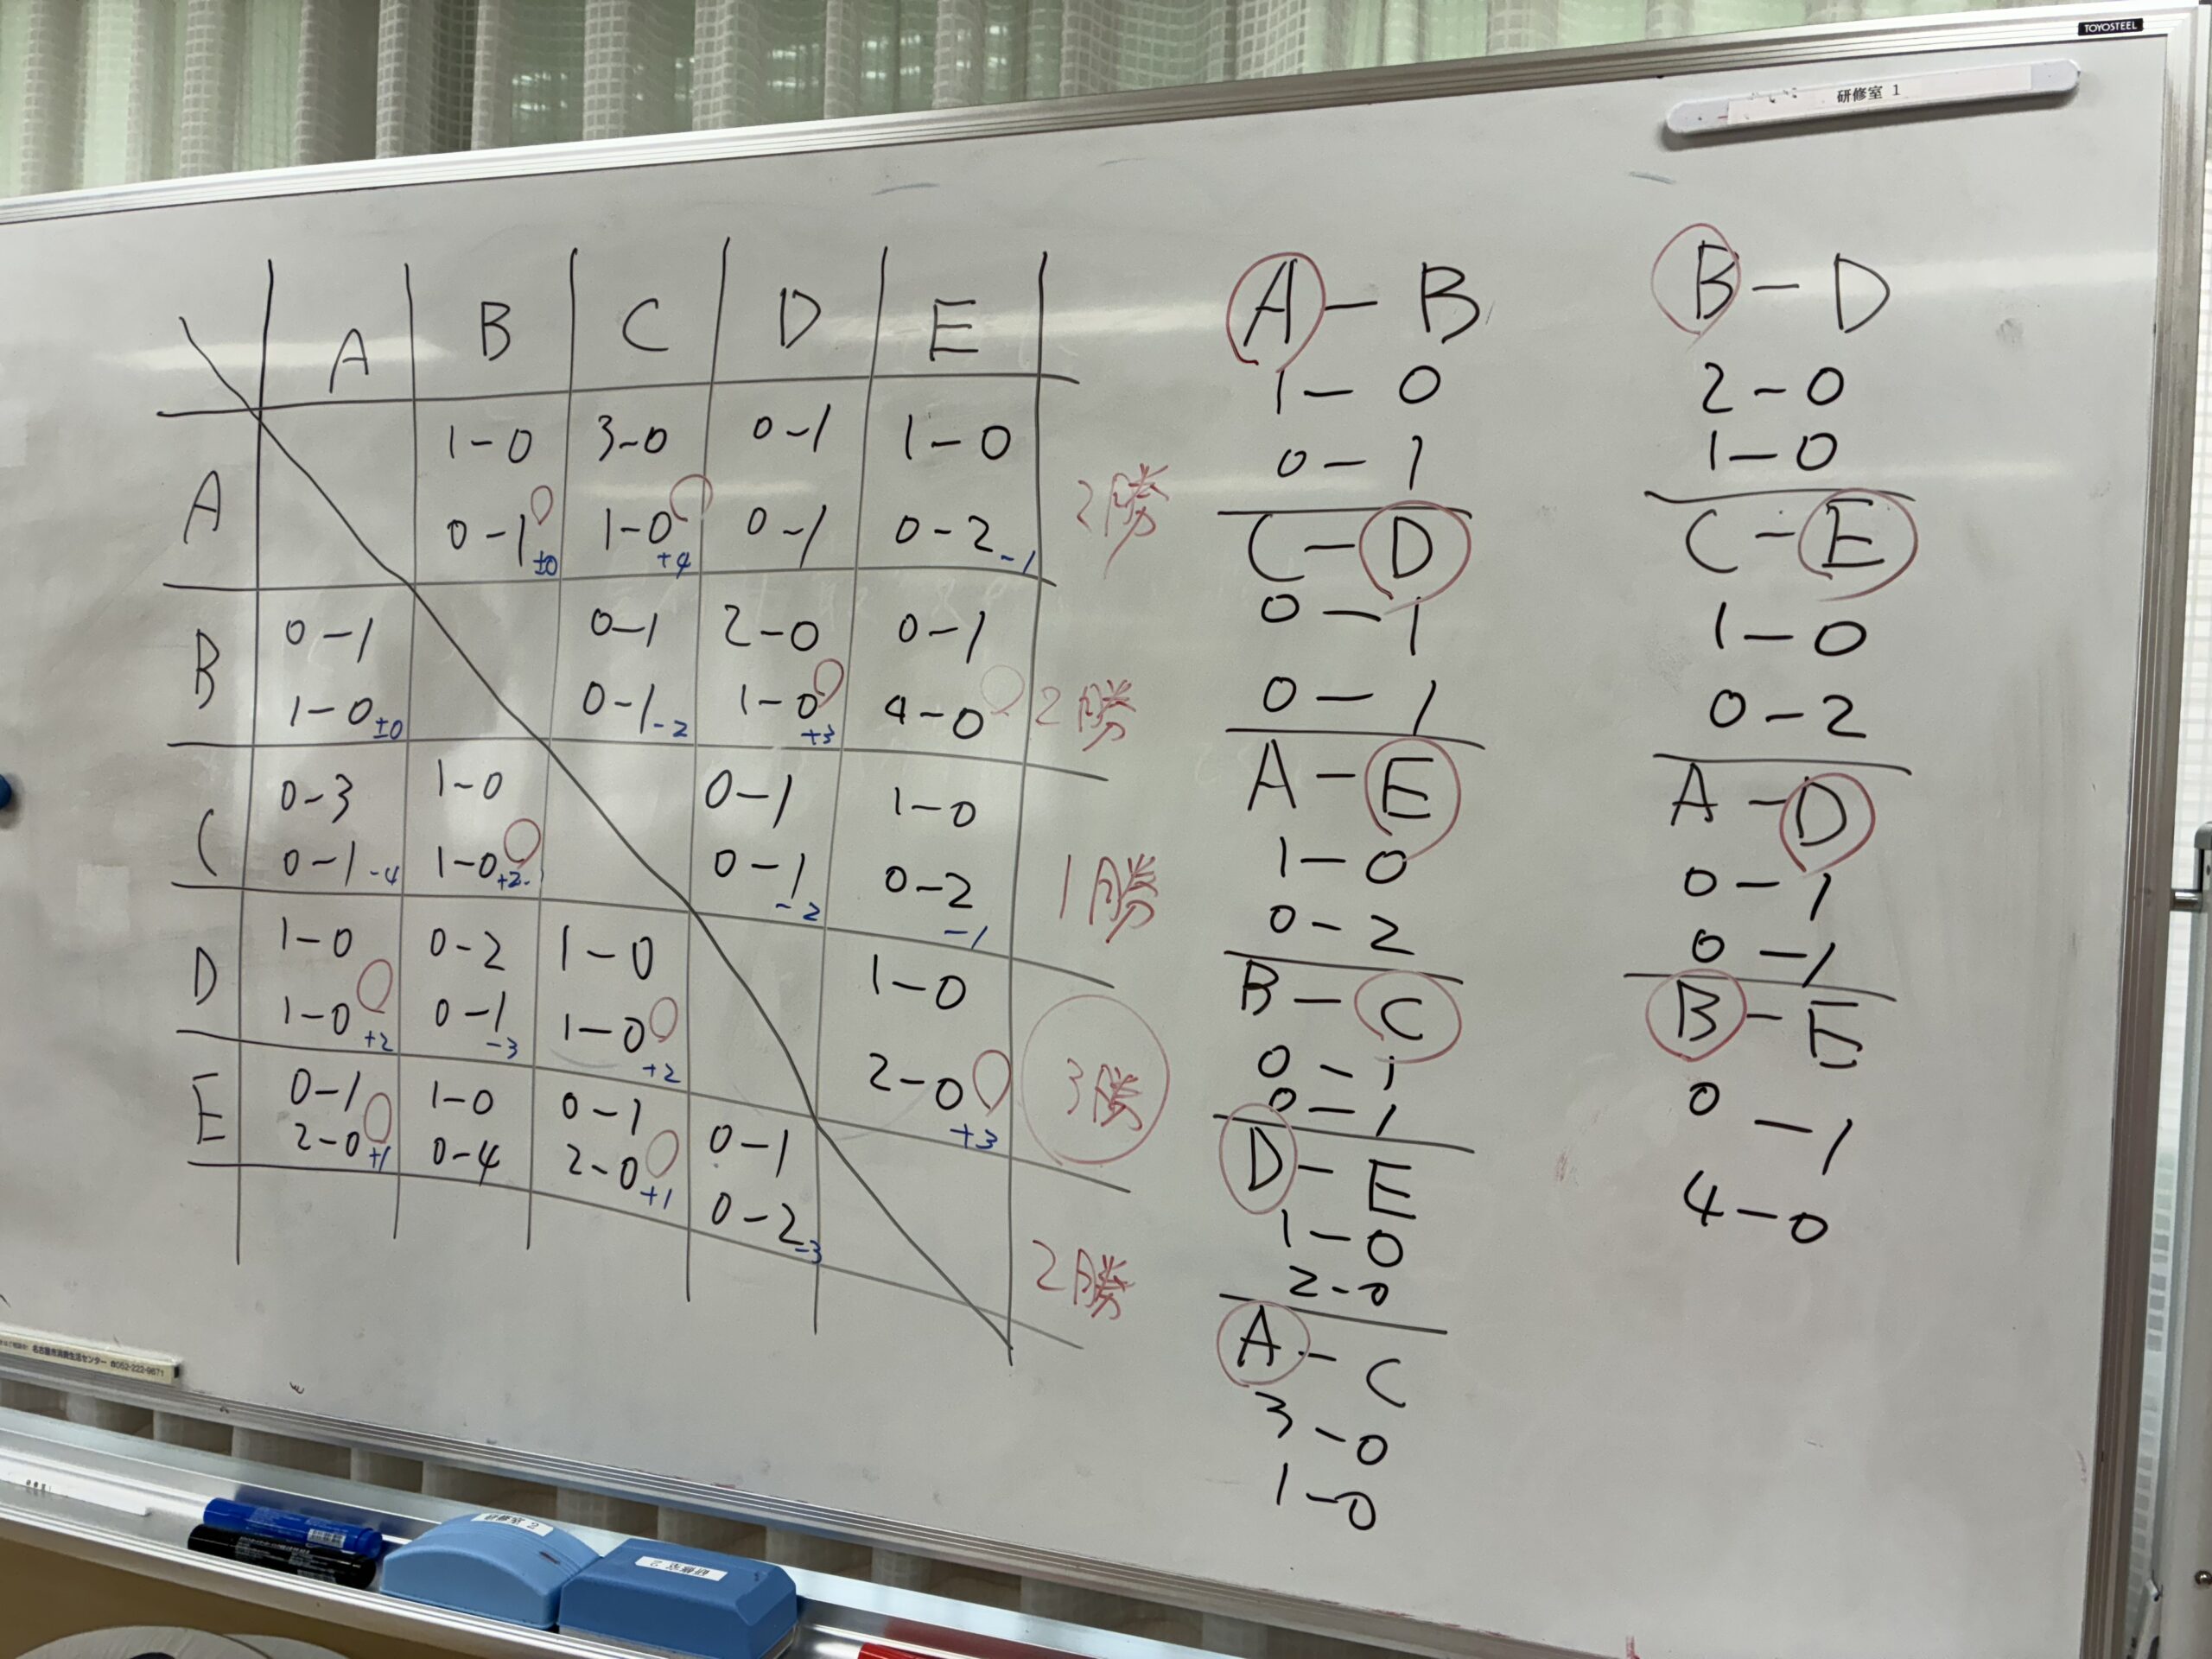 TOYOSTEEL
研修室 1
A B C D E
A 1-0 3-0 0-1 1-0
0-1 ±0 1-0 +4 0-1 0-2 -1 2勝
B 0-1 0-1 2-0 0-1
1-0 ±0 0-1 -2 1-0 +3 4-0 2勝
C 0-3 1-0 0-1 1-0
0-1 -4 1-0 +2 0-1 -2 0-2 -1 1勝
D 1-0 0-2 1-0 1-0
1-0 +2 0-1 -3 1-0 +2 2-0 +3 3勝
E 0-1 1-0 0-1 0-1
2-0 +1 0-4 2-0 +1 0-2 -3 2勝
A - B
1 - 0
0 - 1
C - D
0 - 1
0 - 1
A - E
1 - 0
0 - 2
B - C
0 - 1
0 - 1
D - E
1 - 0
2 - 0
A - C
3 - 0
1 - 0
B - D
2 - 0
1 - 0
C - E
1 - 0
0 - 2
A - D
0 - 1
0 - 1
B - E
0 - 1
4 - 0
名古屋市消費生活センター ☎052-222-9671
研修室 2
研修室 2